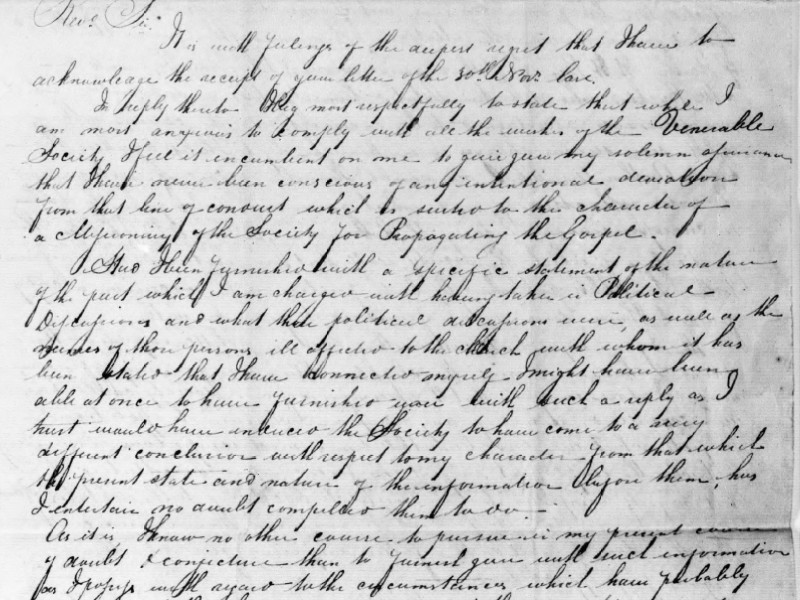 Revd Sir
It is with feelings of the deepest regret that I have to
acknowledge the receipt of your letter of the 30th Novr last.
In reply thereto I beg most respectfully to state that while I
am most anxious to comply with all the wishes of the Venerable
Society I feel it incumbent on me to give you my solemn assurance
that I have never been conscious of any intentional deviation
from that line of conduct which is suited to the character of
a Missionary of the Society for Propagating the Gospel.
Had I been furnished with a specific statement of the nature
of the part which I am charged with having taken in Political
Discussions and what those political discussions were, as well as the
names of those persons ill affected to the church with whom it has
been stated that I have connected myself I might have been
able at once to have furnished you with such a reply as I
trust would have induced the Society to have come to a very
different conclusion with respect to my character from that which
the present state and nature of the information before them, has
I entertain no doubt compelled them to do.
As it is, I know no other course to pursue in my present
of doubt & conjecture than to furnish you with such information
as I possess with regard to the circumstances which have probably